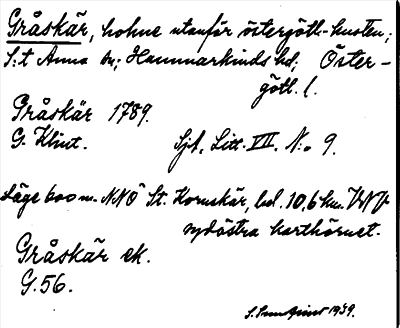 Gråskär, holme utanför östergötl-kusten;
S:t Anna sn; Hammarkinds hd; Öster-
götl. l.
Gråskär 1789.
G. Klint. Sjf. Litt. VII. N:o 9.
Läge 600 m. NNÖ St. Kornskär, bel. 10,6 km. VNV
sydöstra karthörnet.
Gråskär ek.
G.56.
1939.